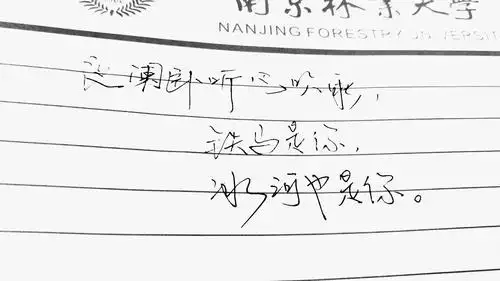 南京林業大学
NANJING FORESTRY UNIVERSITY
夜澜卧听风吹雨,
铁马是你,
冰河也是你。